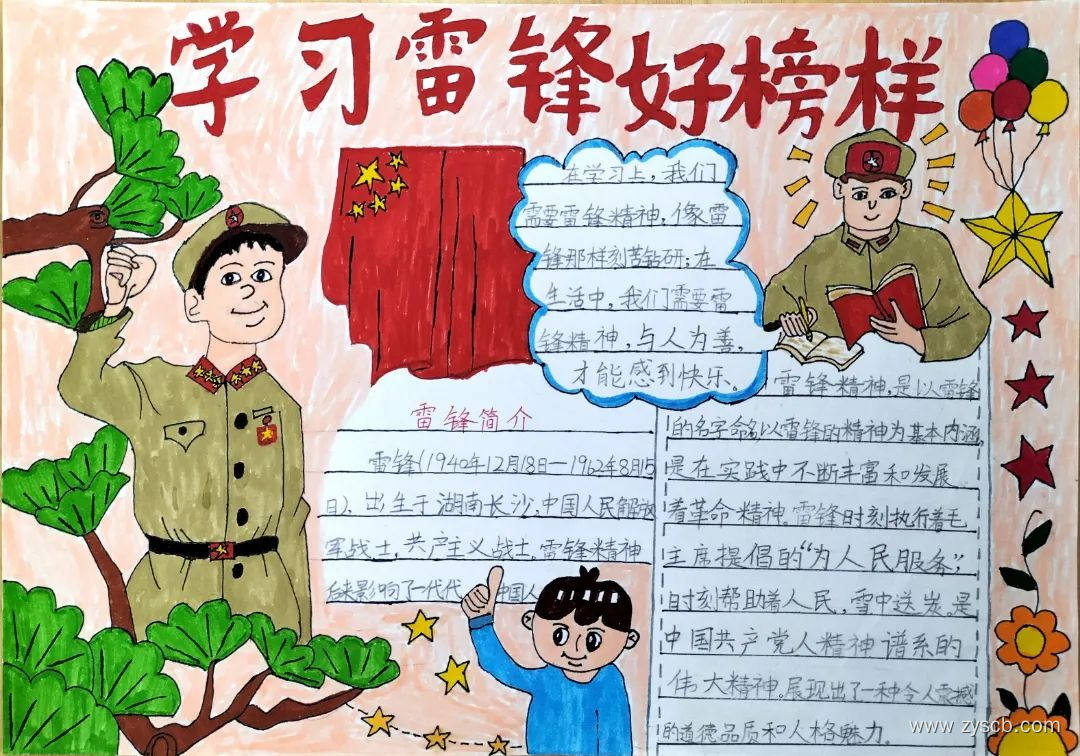 学习雷锋好榜样
在学习上，我们
需要雷锋精神，像雷
锋那样刻苦钻研；在
生活中，我们需要雷
锋精神，与人为善，
才能感到快乐。
雷锋简介
雷锋(1940年12月18日—1962年8月15
日)，出生于湖南长沙，中国人民解放
军战士，共产主义战士，雷锋精神
后来影响了一代代 中国人
雷锋精神，是以雷锋
的名字命名，以雷锋的精神为基本内涵，
是在实践中不断丰富和发展
着革命精神。雷锋时刻执行着毛
主席提倡的“为人民服务”；
时刻帮助着人民，雪中送炭。是
中国共产党人精神谱系的
伟大精神。展现出了一种令人震撼
的道德品质和人格魅力。
www.zyscb.com